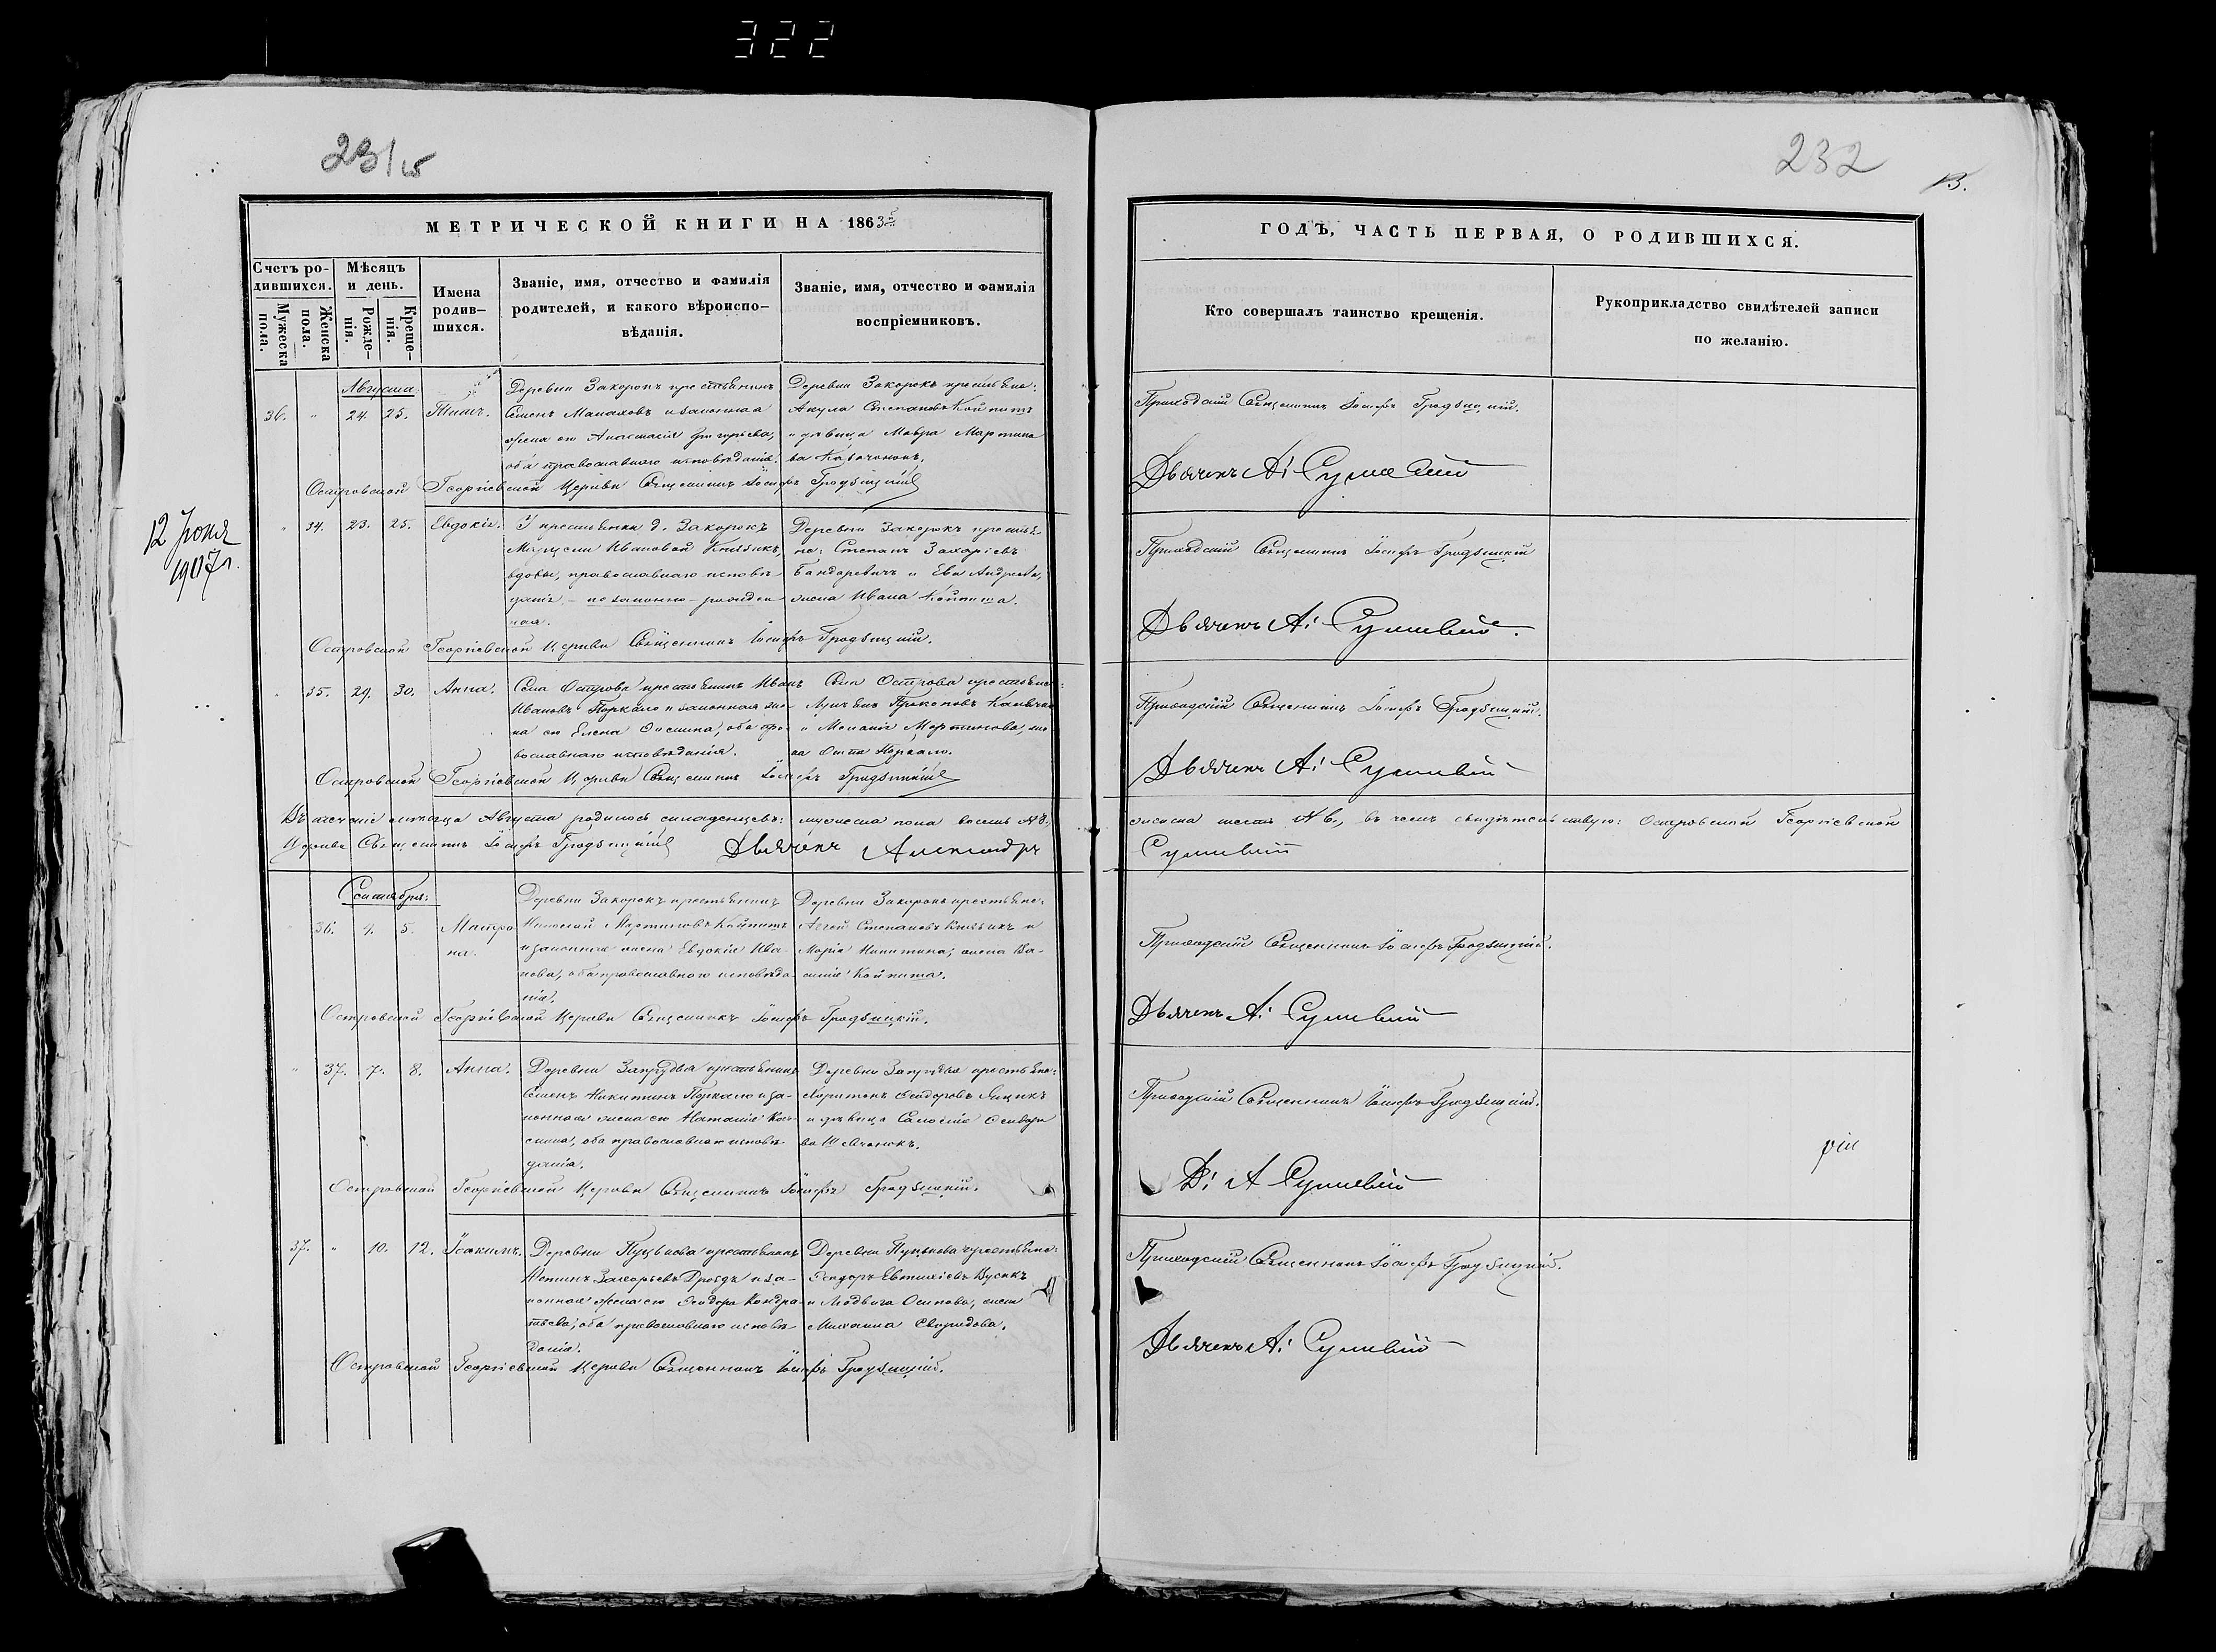 322
231 об
232
13.
МЕТРИЧЕСКОЙ КНИГИ НА 1863й
ГОДЪ, ЧАСТЬ ПЕРВАЯ, О РОДИВШИХСЯ.
Счетъ родившихся.
Мужеска пола.
Женска пола.
Мѣсяцъ и день.
Рожде-нія.
Креще-нія.
Имена
родив-
шихся.
Званіе, имя, отчество и фамилія
родителей, и какого вѣроиспо-
вѣданія.
Званіе, имя, отчество и фамилія
воспріемниковъ.
Кто совершалъ таинство крещенія.
Рукоприкладство свидѣтелей записи
по желанію.
Августа
36. " 24. 25. Титъ.
Деревни Закорокъ крестьянинъ
Семенъ Малаховъ и законная
жена его Анастасія Григорьева,
оба православнаго исповѣданія.
Деревни Закорокъ крестьяне:
Акула Степановъ Койпитъ
и дѣвица Мавра Мартино
ва
Приходскій Священникъ Іосифъ Гродзицкій.
Дьячекъ А:
Островской Георгіевской Церкви Священникъ Іосифъ Гродзицкій
12 Іюня
1907 г.
" 34. 23. 25. Евдокія.
У крестьянки д. Закорокъ
Ивановой Князикъ,
вдовы, православнаго исповѣ
данія – незаконно-рожден
ная.
Деревни Закорокъ крестья-
не: Степанъ Захаріевъ
Бондаревичъ и Ева Андреева,
жена Ивана Койпита.
Приходскій Священникъ Іосифъ Гродзицкій
Дьячекъ А:
Островской Георгіевской Церкви Священникъ Іосифъ Гродзицкій.
" 35. 29. 30. Анна.
Села Острова крестьянинъ Иванъ
Ивановъ и законная же-
на его Елена Осипова, оба пра-
вославнаго исповѣданія.
Села Острова крестьяне:
Прокоповъ
и Меланія Мартинова, же
на
Приходскій Священникъ Іосифъ Гродзицкій.
Дьячекъ А:
Островской Георгіевской Церкви Священникъ Іосифъ Гродзицкій
Въ теченіе мѣсяца Августа родилось младенцевъ: мужеска пола восемь № 8., женска шесть № 6., въ чемъ свидѣтельствую: Островской Георгіевской
Церкви Священникъ Іосифъ Гродзицкій Дьячекъ Александръ
Сентября:
" 36. 4. 5. Матро
на.
Деревни Закорокъ крестьянинъ
Мартиновъ Койпитъ
и законная жена Евдокія Ива-
нова, оба православнаго исповѣда
нія.
Деревни Закорокъ крестьяне:
Степановъ Князикъ и
Марія Никитина, жена Ва-
силія Койпита.
Приходскій Священникъ Іосифъ Гродзицкій.
Дьячекъ А:
Островской Георгіевской Церкви Священникъ Іосифъ Гродзицкій.
" 37. 7. 8. Анна.
Деревни Запрудья крестьянинъ
Семенъ Никитинъ и за-
конная жена его Наталія Кось-
мина, оба православнаго исповѣ-
данія.
Деревни Запрудья крестьяне:
Харитонъ Ѳеодоровъ
и дѣвица Саломія Ѳеодоро
ва
Приходскій Священникъ Іосифъ Гродзицкій.
Д: А
Островской Георгіевской Церкви Священникъ Іосифъ Гродзицкій.
37. " 10. 12. Іоакимъ.
Деревни крестьянинъ
Захарьевъ Дроздъ и за-
конная жена его Ѳеодора Кондра-
тьева, оба православнаго исповѣ-
данія.
Деревни крестьяне:
Ѳеодоръ Евтихіевъ Бусикъ
и Людвига Осипова, жена
Михаила Свиридова.
Приходскій Священникъ Іосифъ Гродзицкій.
Дьячекъ А:
Островской Георгіевской Церкви Священникъ Іосифъ Гродзицкій.